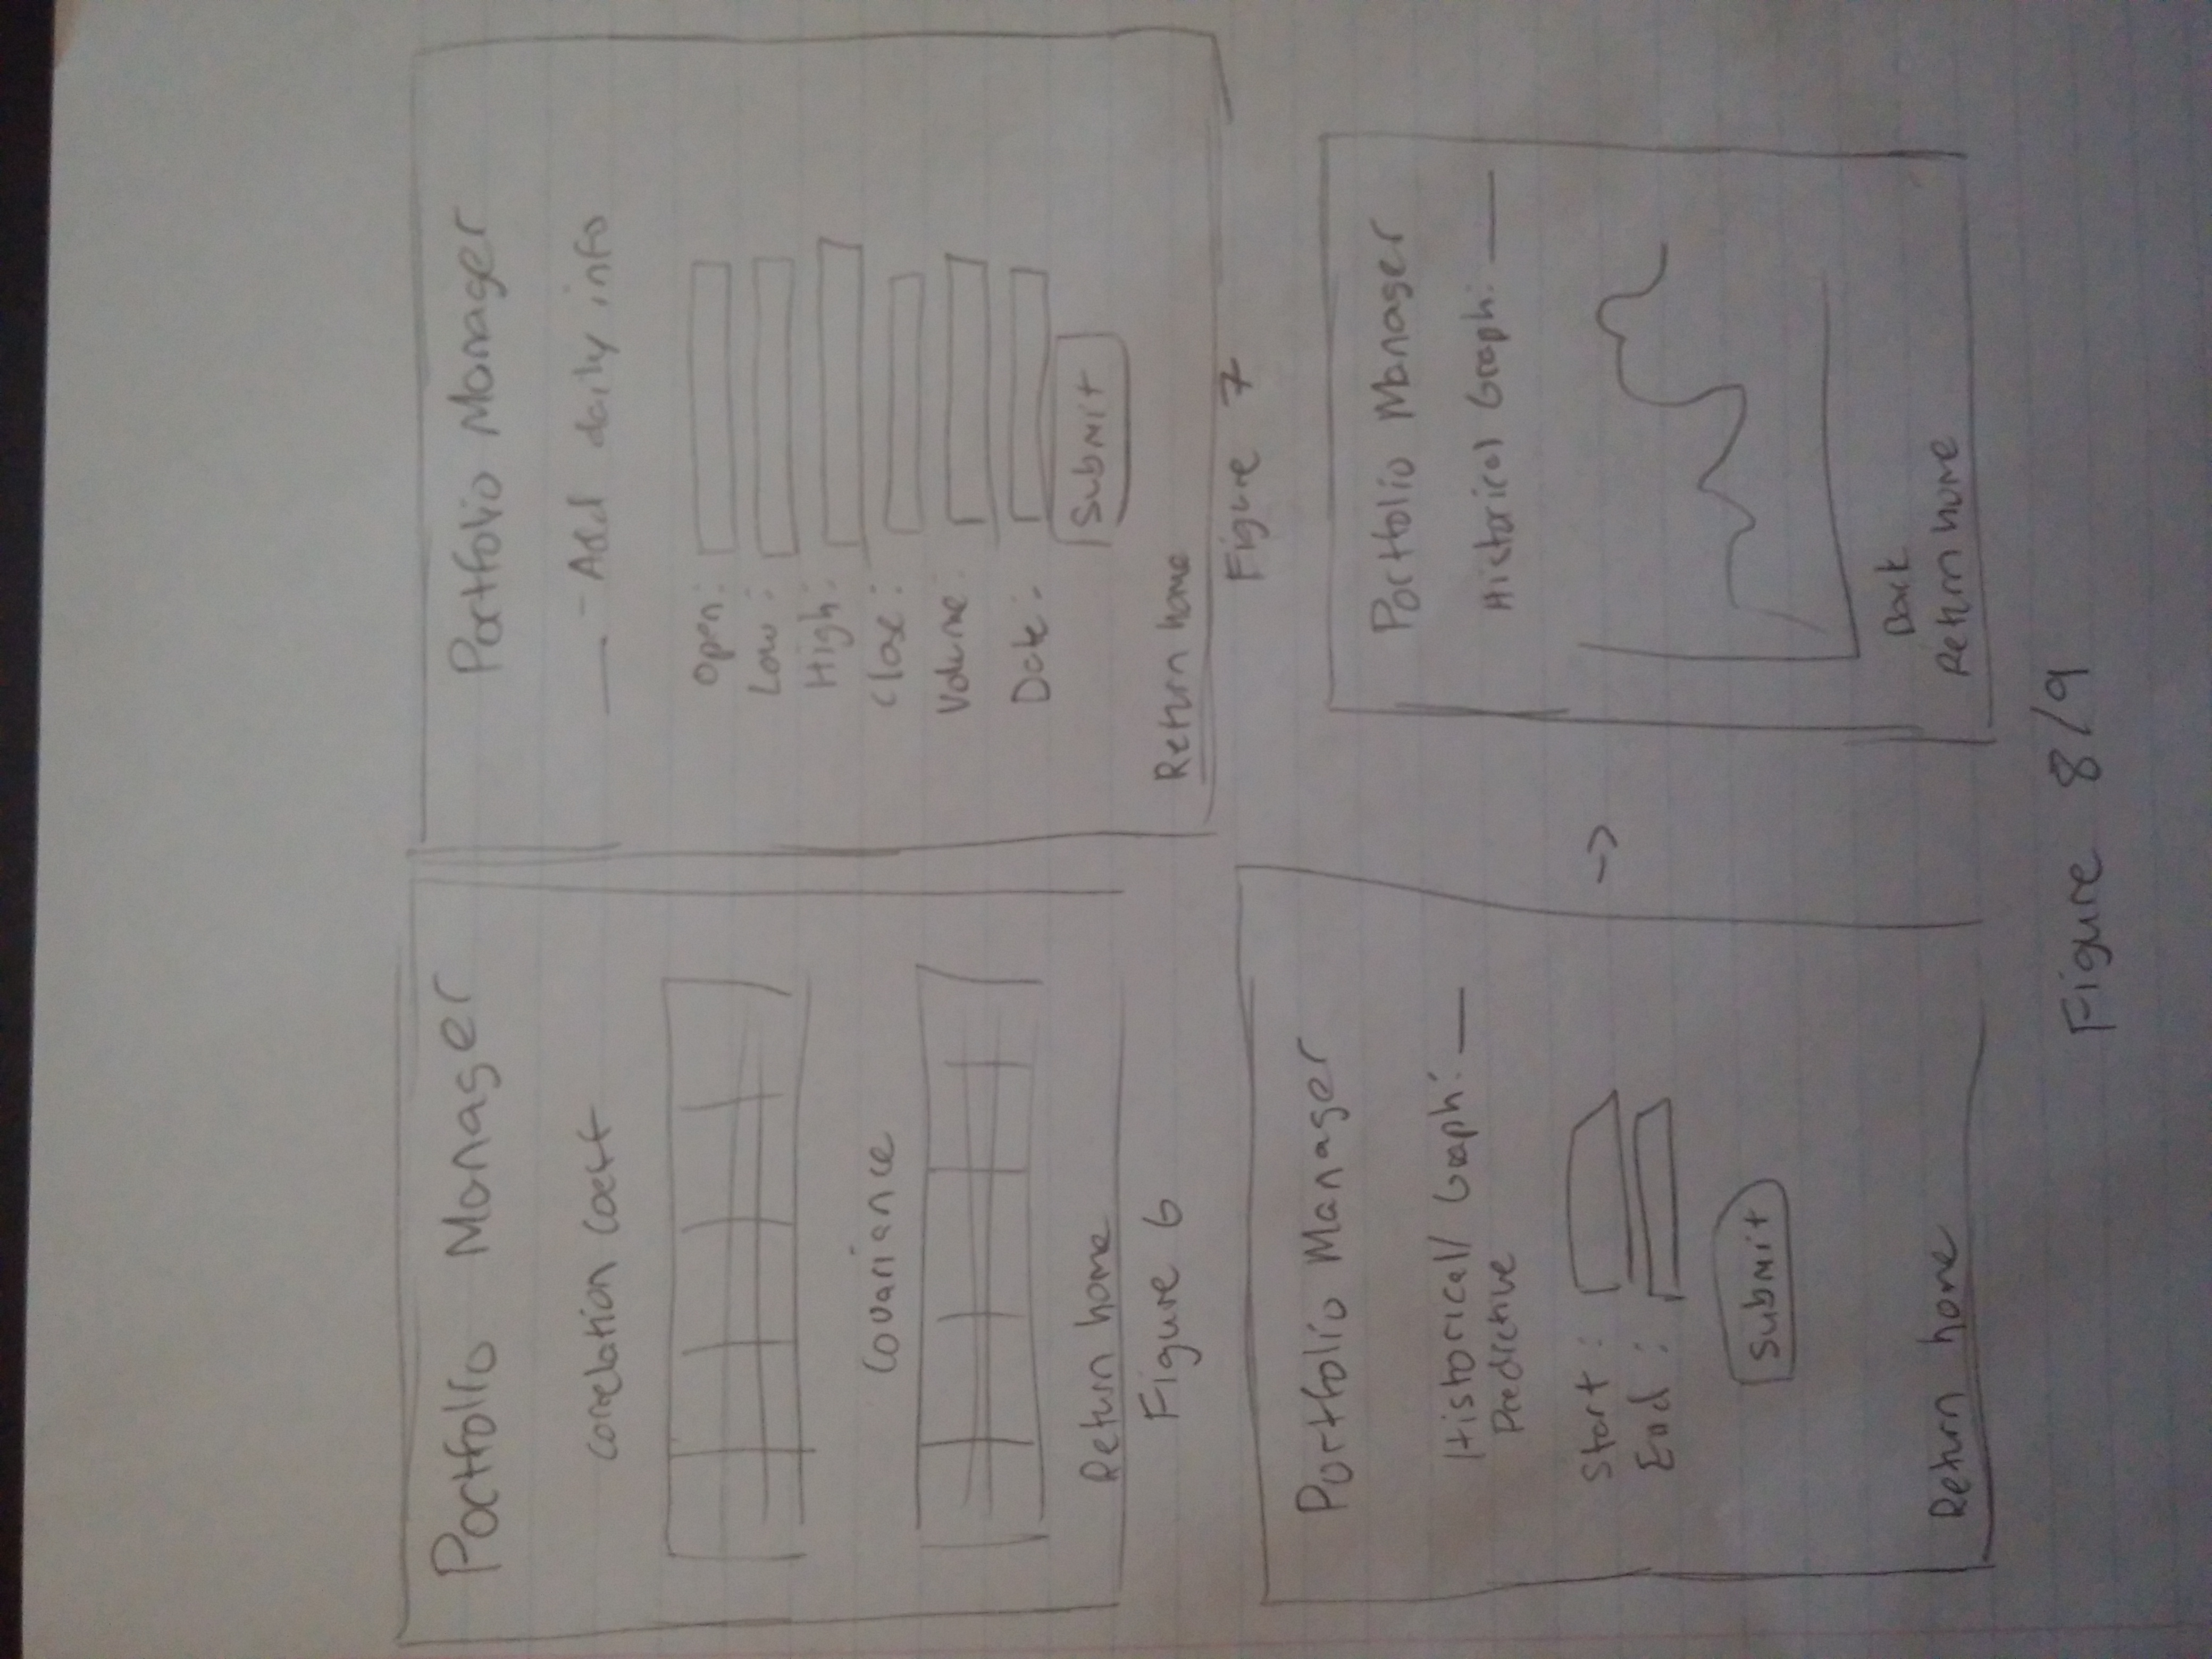 Portfolio Manager
Correlation Coeff
Covariance
Return home
Figure 6
Portfolio Manager
___ - Add daily info
Open:
Low:
High:
Close:
Volume
Date:
Submit
Return home
Figure 7
Portfolio Manager
Historical/ Graph: __
Predictive
Start:
End:
Submit
Return home
->
Portfolio Manager
Historical Graph: ___
Back
Return home
Figure 8/9